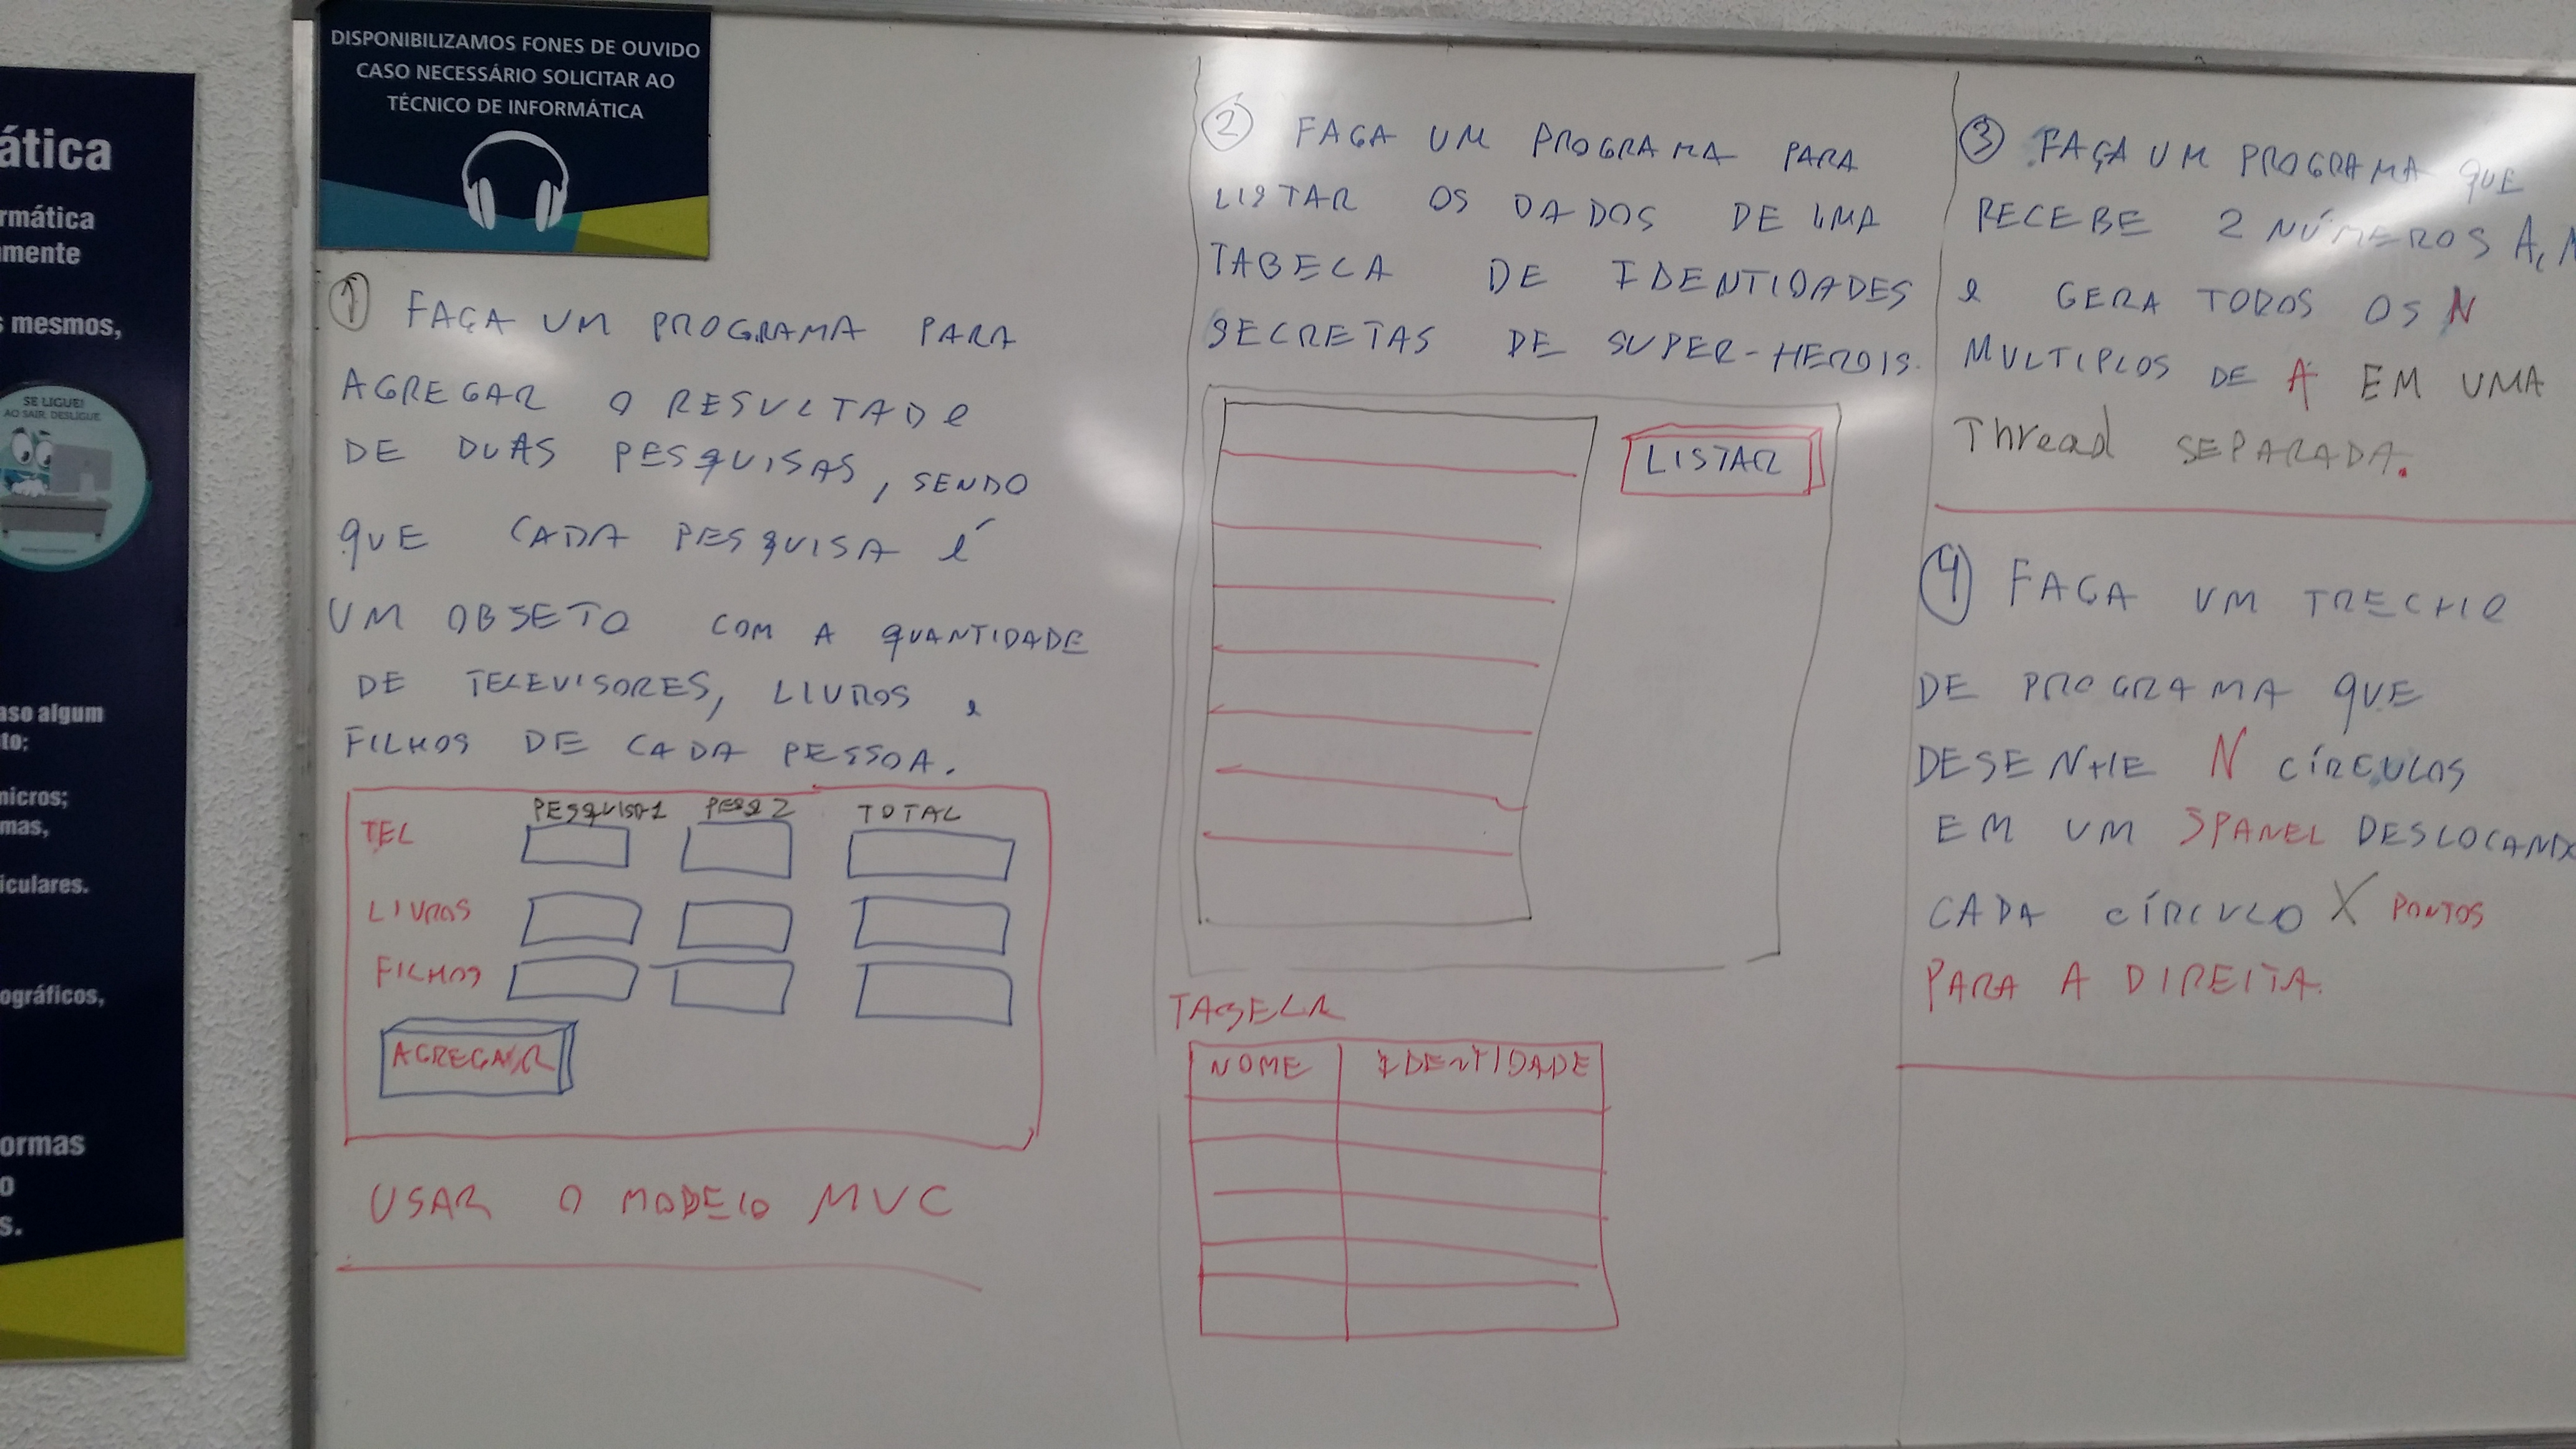 DISPONIBILIZAMOS FONES DE OUVIDO
CASO NECESSÁRIO SOLICITAR AO
TÉCNICO DE INFORMÁTICA
ática
rmática
mente
s mesmos,
SE LIGUE!
AO SAIR, DESLIGUE
aso algum
to;
micros;
mas,
iculares.
ográficos,
ormas
o
s.
1 FAÇA UM PROGRAMA PARA
AGREGAR O RESULTADO
DE DUAS PESQUISAS, SENDO
QUE CADA PESQUISA É
UM OBJETO COM A QUANTIDADE
DE TELEVISORES, LIVROS e
FILHOS DE CADA PESSOA.
PESQUISA1 PESQ 2 TOTAL
TEL
LIVROS
FILHOS
AGREGAR
USAR O MODELO MVC
2 FAÇA UM PROGRAMA PARA
LISTAR OS DADOS DE UMA
TABELA DE IDENTIDADES
SECRETAS DE SUPER-HEROIS.
LISTAR
TABELA
NOME IDENTIDADE
3 FAÇA UM PROGRAMA QUE
RECEBE 2 NÚMEROS A, N
e GERA TODOS OS N
MULTIPLOS DE A EM UMA
Thread SEPARADA.
4 FAÇA UM TRECHO
DE PROGRAMA QUE
DESENHE N CÍRCULOS
EM UM JPANEL DESLOCAND
CADA CÍRCULO X PONTOS
PARA A DIREITA.